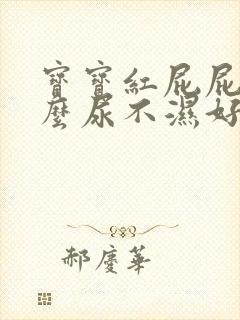 寶寶紅屁屁
麼尿不濕好
郝慶華